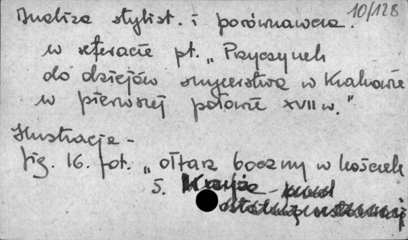 10/128
Analiza stylist. i porównawcza.
w referacie pt. „Przyczynek
do dziejów snycerstwa w Krakowie
w pierwszej połowie XVII w."
Ilustracje -
fig. 16. fot. „ołtarz boczny w kościele
S.